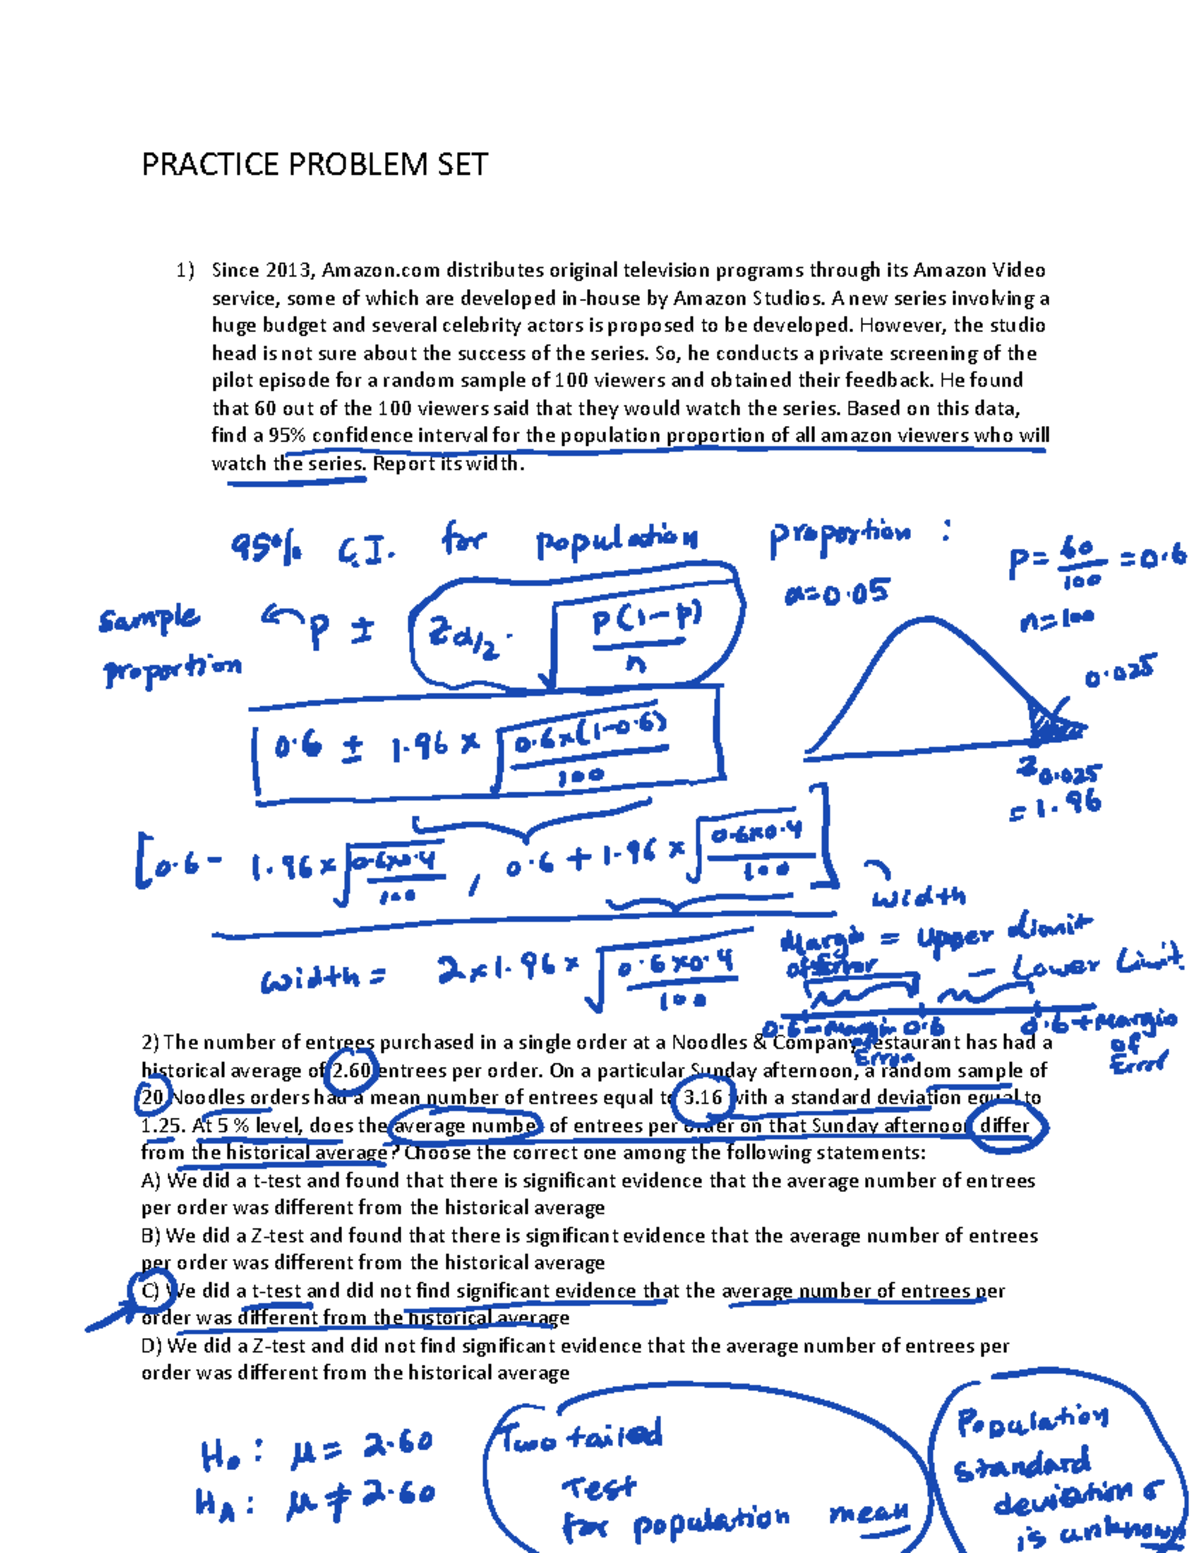 PRACTICE PROBLEM SET
1) Since 2013, Amazon.com distributes original television programs through its Amazon Video
service, some of which are developed in-house by Amazon Studios. A new series involving a
huge budget and several celebrity actors is proposed to be developed. However, the studio
head is not sure about the success of the series. So, he conducts a private screening of the
pilot episode for a random sample of 100 viewers and obtained their feedback. He found
that 60 out of the 100 viewers said that they would watch the series. Based on this data,
find a 95% confidence interval for the population proportion of all amazon viewers who will
watch the series. Report its width.
95% C.I. for population proportion :
P = 60/100 = 0.6
α=0.05
n=100
sample proportion
P ± Zα/2 · √(P(1-P)/n)
0.025
0.6 ± 1.96 × √(0.6×(1-0.6)/100)
Z0.025 = 1.96
[0.6 - 1.96 × √(0.6×0.4/100) , 0.6 + 1.96 × √(0.6×0.4/100)]
width
= Upper Limit
- Lower Limit
width = 2×1.96× √(0.6×0.4/100)
Margin of Error
0.6 - Margin of Error 0.6 0.6 + Margin of Error
2) The number of entrees purchased in a single order at a Noodles & Company restaurant has had a
historical average of 2.60 entrees per order. On a particular Sunday afternoon, a random sample of
20 Noodles orders had a mean number of entrees equal to 3.16 with a standard deviation equal to
1.25. At 5 % level, does the average number of entrees per order on that Sunday afternoon differ
from the historical average? Choose the correct one among the following statements:
A) We did a t-test and found that there is significant evidence that the average number of entrees
per order was different from the historical average
B) We did a Z-test and found that there is significant evidence that the average number of entrees
per order was different from the historical average
C) We did a t-test and did not find significant evidence that the average number of entrees per
order was different from the historical average
D) We did a Z-test and did not find significant evidence that the average number of entrees per
order was different from the historical average
H₀ : μ = 2.60
H_A : μ ≠ 2.60
Two tailed
Test
for population mean
Population
standard
deviation σ
is unknown